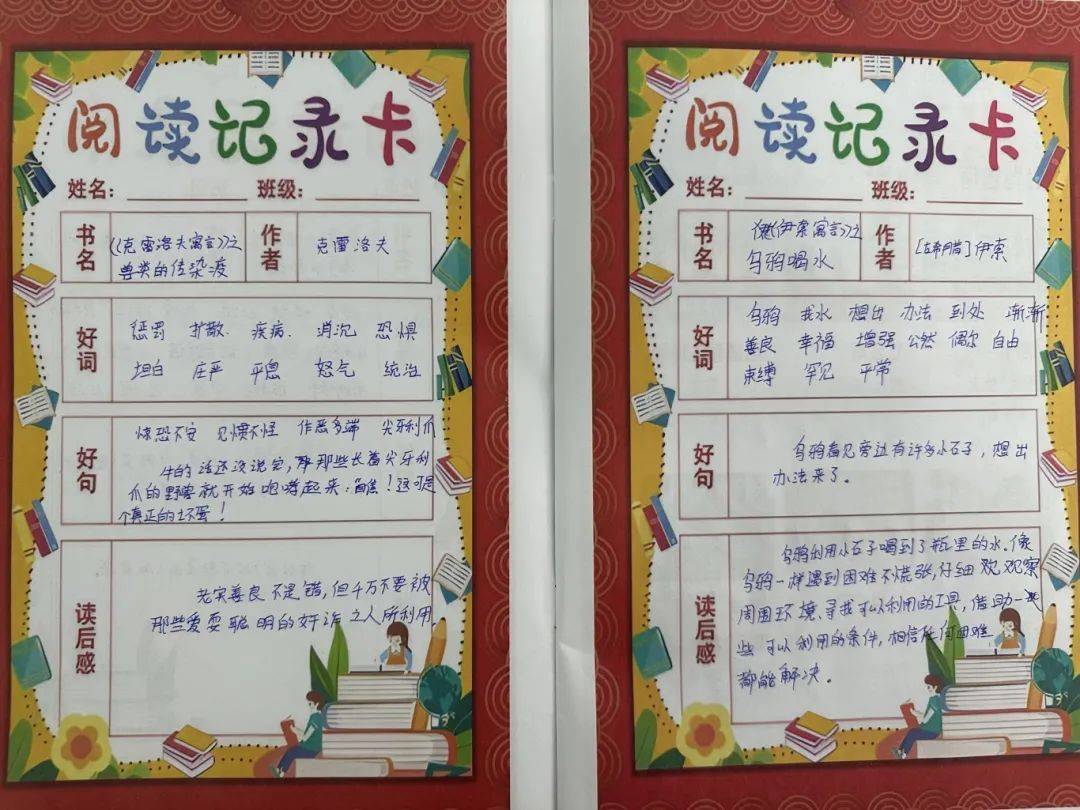 阅读记录卡
姓名：
班级：
书名
《克雷洛夫寓言》之
兽类的传染疫
作者
克雷洛夫
好词
惩罚 扩散 疾病 消沉 恐惧
坦白 庄严 平息 怒气 统治
好句
惊恐不安 见惯不怪 作恶多端 尖牙利爪
牛的话还没说完，那些长着尖牙利
爪的野兽就开始咆哮起来：瞧！这可是
个真正的坏蛋！
读后感
老实善良不是错，但千万不要被
那些爱耍聪明的奸诈之人所利用
阅读记录卡
姓名：
班级：
书名
《伊索寓言》之
乌鸦喝水
作者
[古希腊]伊索
好词
乌鸦 找水 想出 办法 到处 渐渐
善良 幸福 增强 公然 偶尔 自由
束缚 罕见 平常
好句
乌鸦看见旁边有许多小石子，想出
办法来了。
读后感
乌鸦利用小石子喝到了瓶里的水。像
乌鸦一样遇到困难不慌张，仔细观察
周围环境、寻找可以利用的工具，借助一
些可以利用的条件，相信任何困难
都能解决。